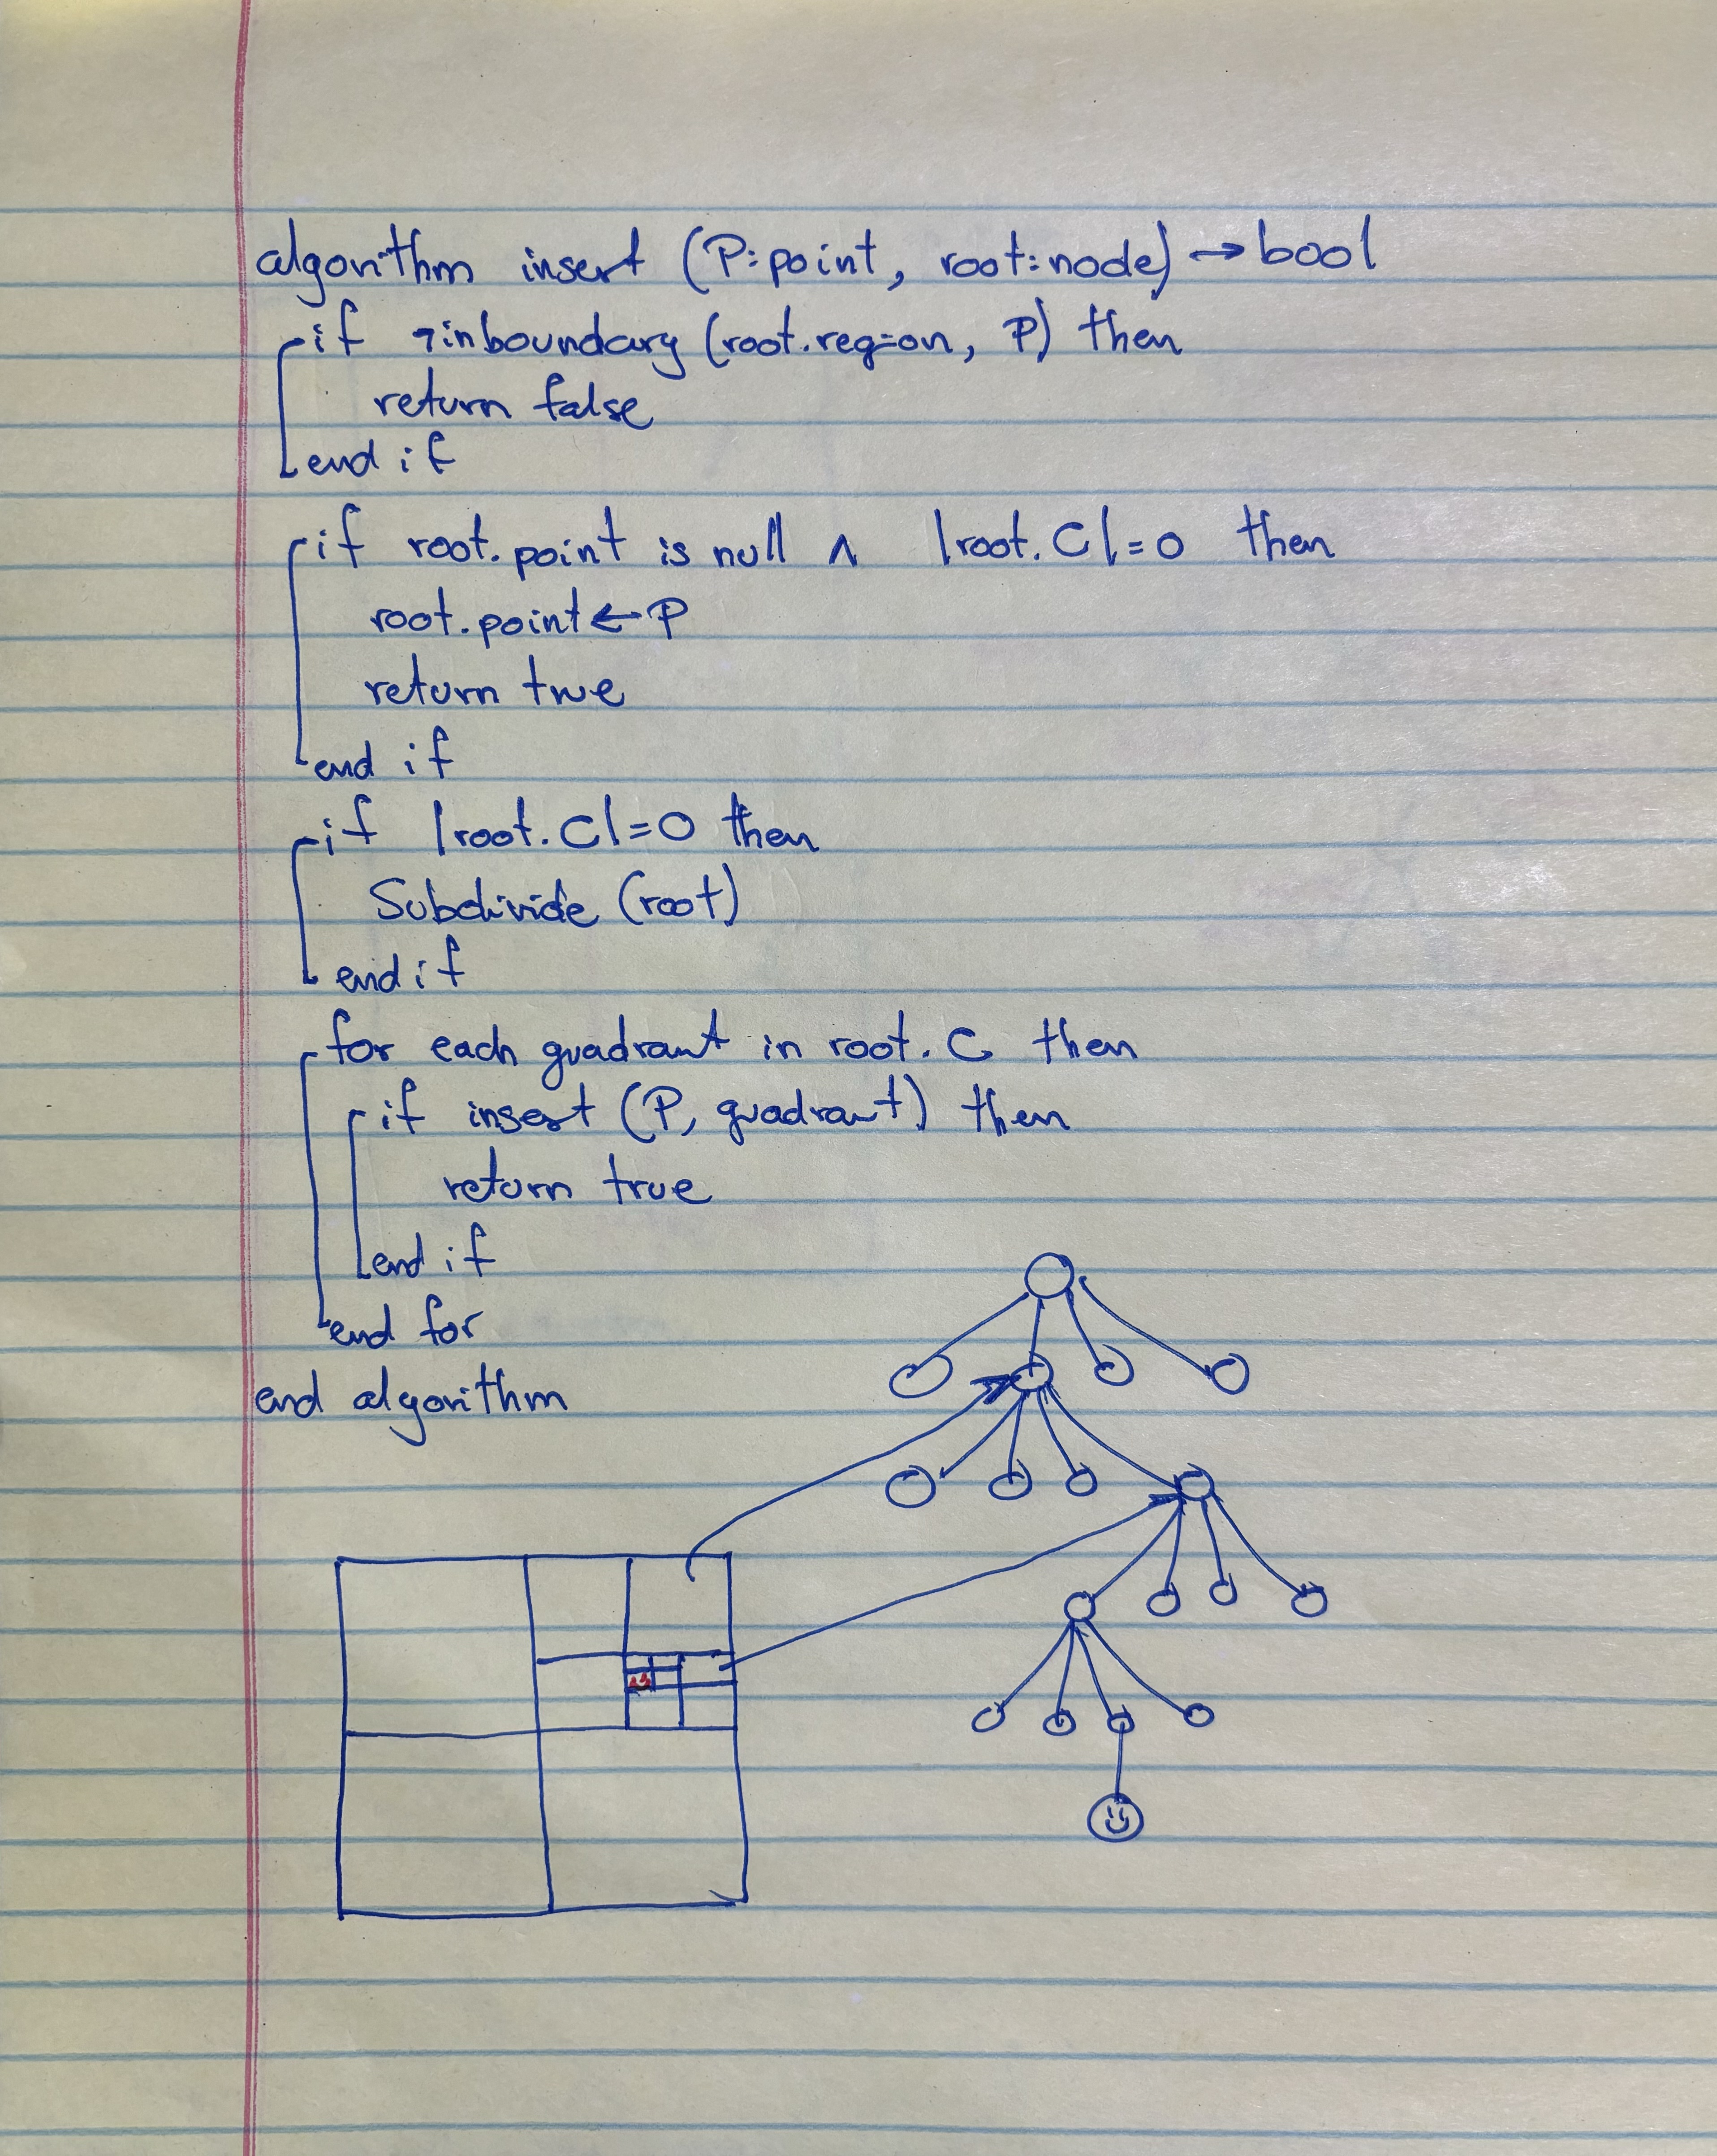 algorithm insert (P:point, root:node) → bool
if ¬inboundary (root.region, P) then
return false
end if
if root.point is null ∧ |root.C|=0 then
root.point ← P
return true
end if
if |root.C|=0 then
Subdivide (root)
end if
for each quadrant in root.C then
if insert (P, quadrant) then
return true
end if
end for
end algorithm